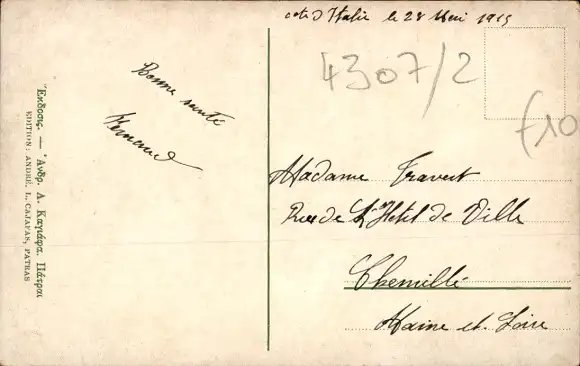 cote d'Italie le 28 Mai 1915
4307/2
f10
Bonne santé
Fernand
Madame Travert
Rue de L'Hotel de Ville
Chemillé
Maine et. Loire
Ἔκδοσις. — Ἀνδρ. Λ. Καγιάφα. Πάτραι
EDITION: ANDRÉ, L. CAJAFAS, PATRAS